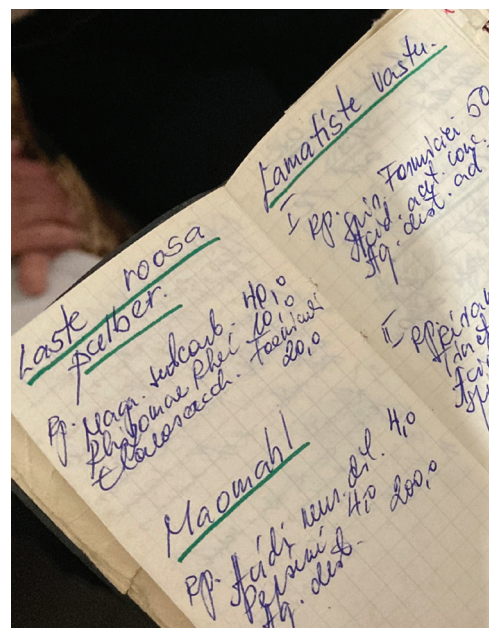 Laste roosa
pulber.
Rp. Magn. subcarb. 40,0
Rhizomae Rhei 10,0
Elaeosacch. Foeniculi
20,0
Maomahl
Rp. Acidi mur. dil. 4,0
Pepsini 4,0
Aq. dest. 200,0
Lamatiste vastu.
I Rp. Spir. Formicici 50
Acid. acet. conc.
Aq. dest. ad
II Rp.